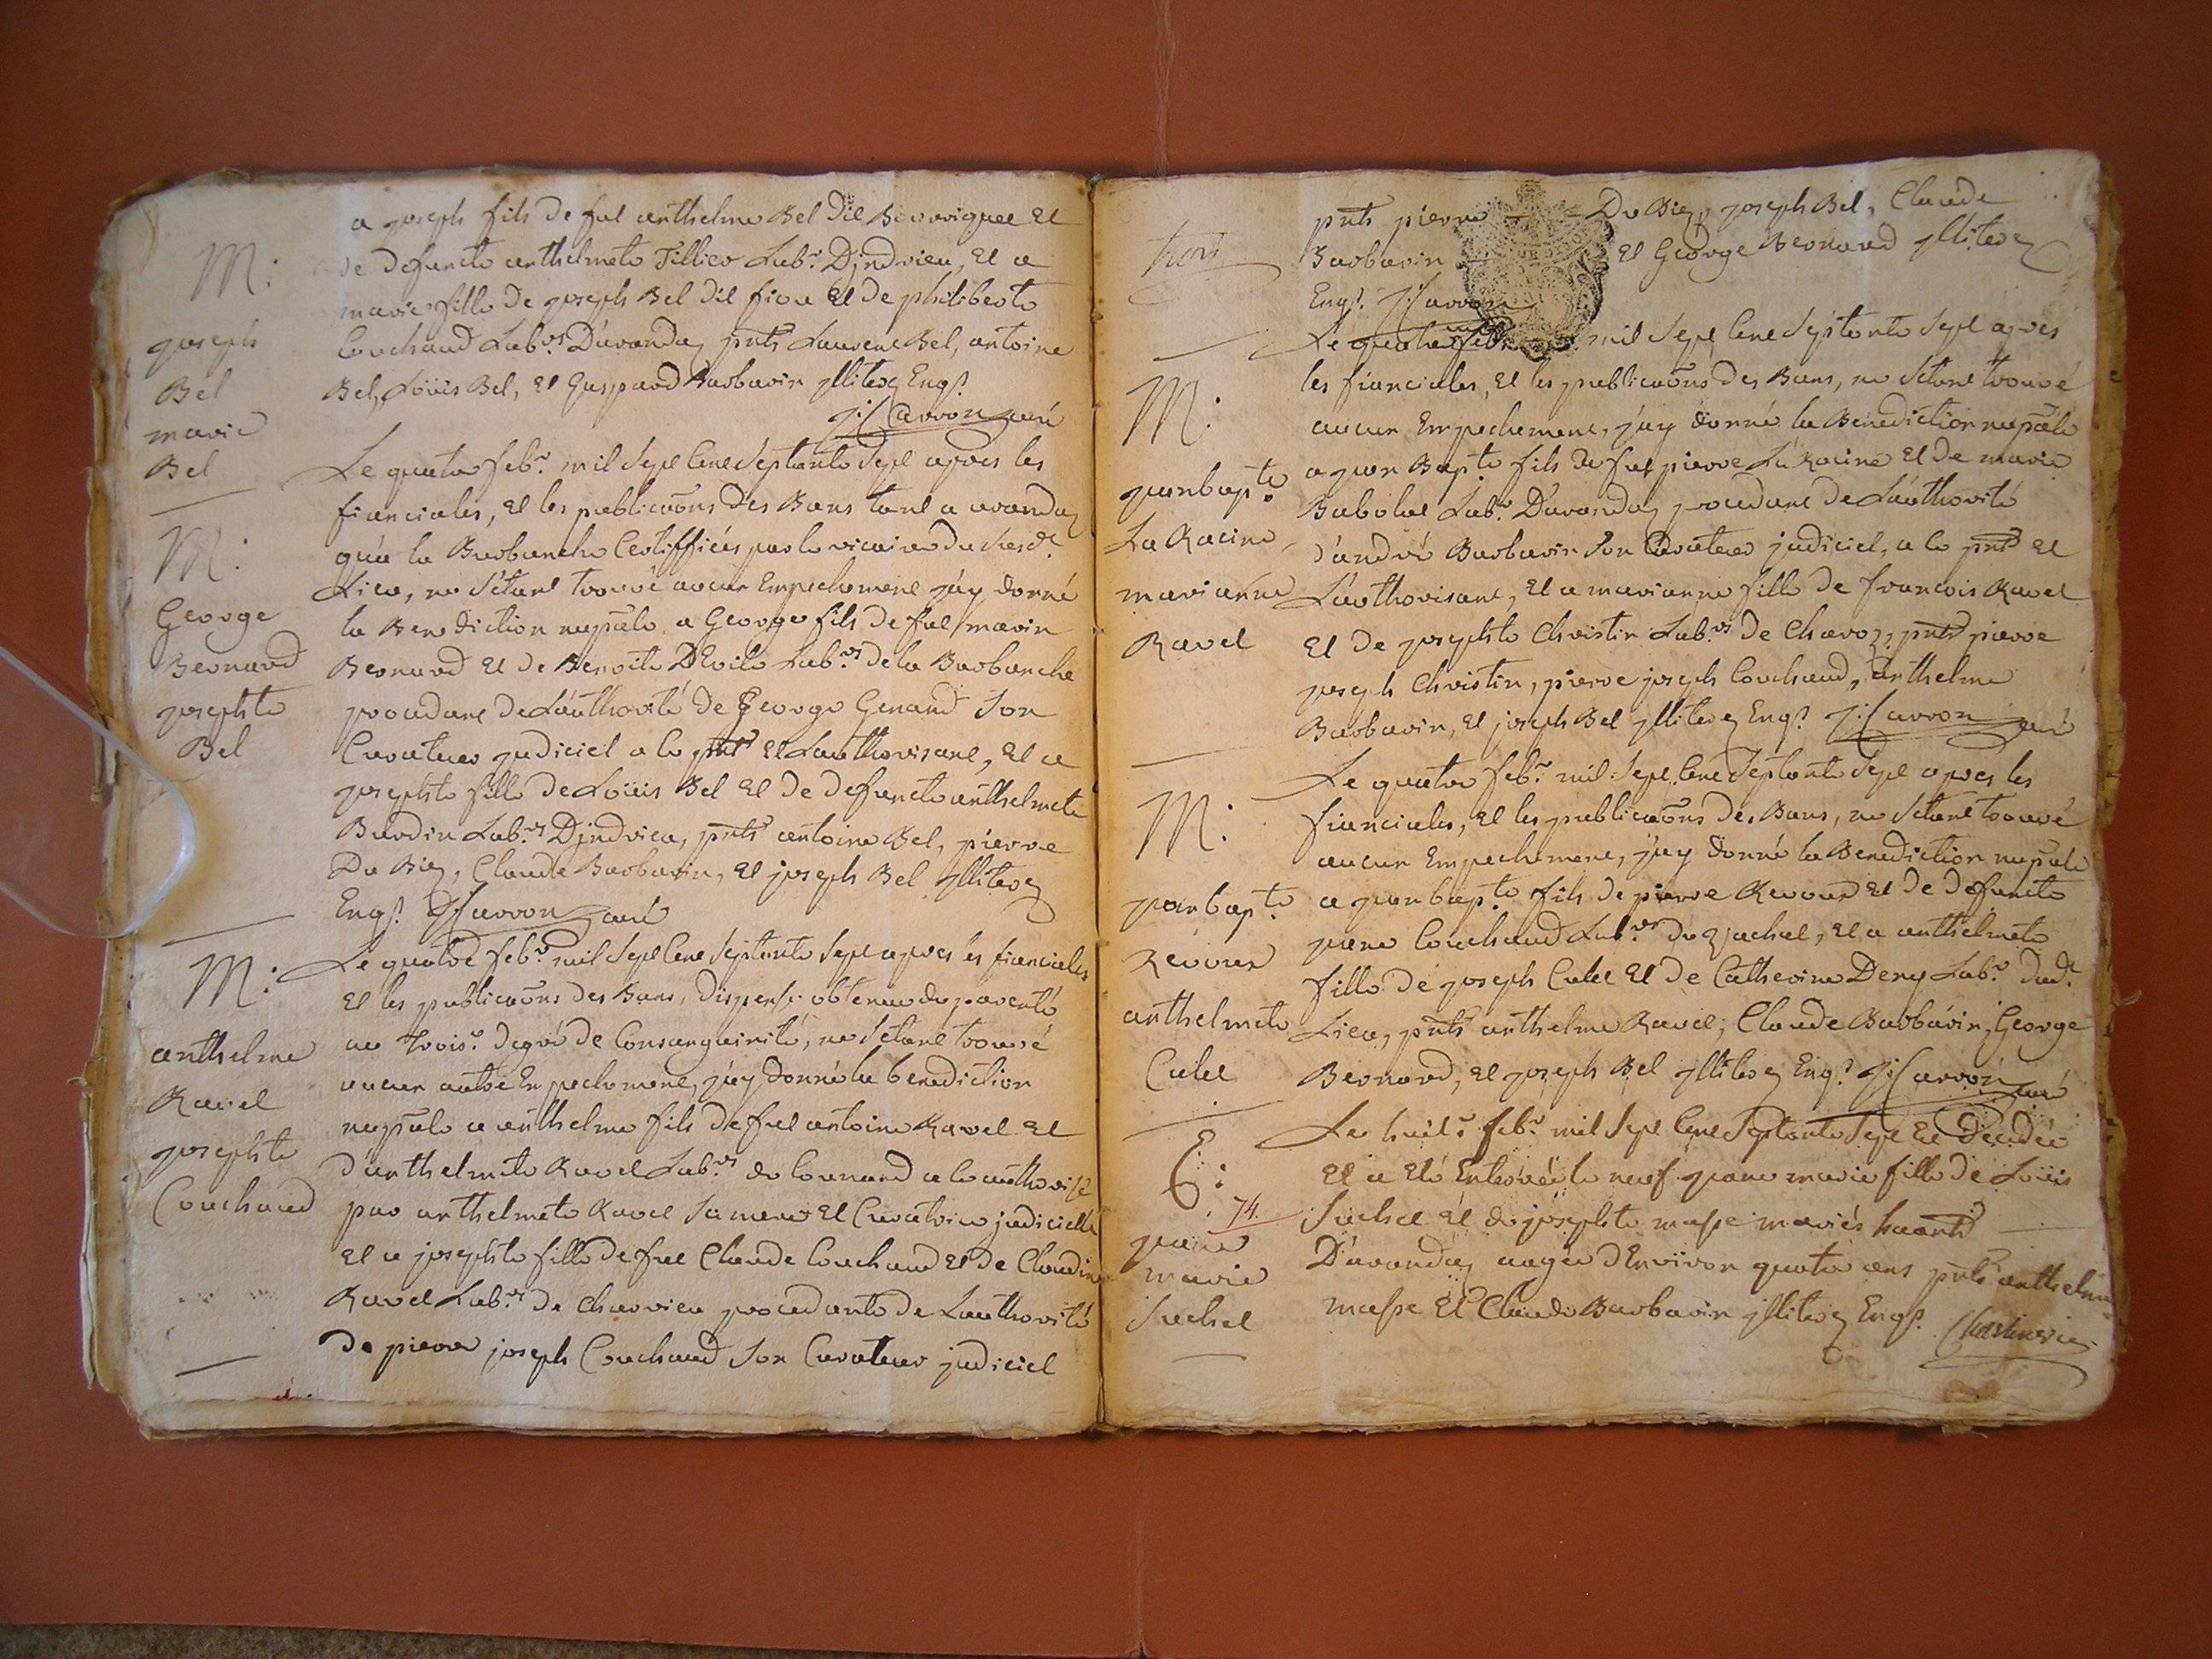 M:
joseph
Bel
marie
Bel
a joseph fils de fut anthelme Bel dit et
de defuncte anthelmete Tillier Labr. D'jndrieu, et a
marie fille de joseph Bel dit et de philiberte
Couchaud Labrs. D'avanday pnts Laurent Bel, antoine
Bel, Loüis Bel, et Gaspard Barbarin jllites Engs.
J: Carron curé
M:
George
Bernard
josephte
Bel
Le quatre febr. mil Sept Cent Septante Sept apres les
fianciales, et les publicaõns des Bans tant a avanday
qu'a la Barbanche Certiffiées par le vicaire du susd.
Lieu, ne S'etant trouvé aucun Empechement j'ay donné
la Benediction nupãle a George fils de fut marin
Bernard et de Benoite Labrs. de la Barbanche
procedant de L'authorité de George Genand Son
Curateur judiciel a ce pnt et L'authorisant, et a
josephte fille de Loüis Bel et de defuncte anthelmete
Bardin Labrs. D'jndrieu, pnts antoine Bel, pierre
Du Biez, Claude Barbarin, et joseph Bel jllites
Engs. J: Carron curé
M:
anthelme
Ravel
josephte
Couchaud
Le quatre febr. mil Sept Cent Septante Sept apres les fianciales
et les publicaõns des Bans, dispense obtenue du parenté
au trois. degré de Consanguinité, ne S'etant trouvé
aucun autre Empechement, j'ay donné la benediction
nupãle a anthelme fils de fut antoine Ravel et
d'anthelmete Ravel Labrs. de Lounand a ce authorisé
par anthelmete Ravel Sa mere et Curatrice judicielle
et a josephte fille de fut Claude Couchaud et de Claudine
Ravel Labrs. de Charvieu procedante de L'authorité
de pierre joseph Couchaud Son Curateur judiciel
trois
pnts pierre Du Biez, joseph Bel, Claude
Barbarin et George Bernard jllites
Engs. J: Carron
M:
jean bapte.
La Racine
marianne
Ravel
Le quatre febr. mil Sept Cent Septante Sept apres
les fianciales, et les publicaõns des Bans, ne S'etant trouvé
aucun Empechement, j'ay donné la Benediction nupãle
a jean Bapte. fils de fut pierre La Racine et de marie
Babolat Labr. D'avanday procedant de L'authorité
d'andré Barbarin Son Curateur judiciel, a ce pnt et
L'authorisant, et a marianne fille de francois Ravel
et de josephte Christin Labrs. de Charoz, pnts pierre
joseph Christin, pierre joseph Couchaud, anthelme
Barbarin, et joseph Bel jllites Engs. J: Carron curé
M:
jean bapte.
Revour
anthelmete
Culet
Le quatre febr. mil Sept Cent Septante Sept apres les
fianciales, et les publicaõns des Bans, ne S'etant trouvé
aucun Empechement, j'ay donné la Benediction nupãle
a jean bapte. fils de pierre Revour et de defuncte
jeane Couchaud Labrs. de et a anthelmete
fille de joseph Culet et de Catherine Deny Labr. dud.
Lieu, pnts anthelme Ravel, Claude Barbarin, George
Bernard, et joseph Bel jllites Engs. J: Carron curé
E:
74.
jeane
marie
Suchet
Le huit. febr. mil Sept Cent Septante Sept Est Decedée
et a eté Enterrée le neuf jeane marie fille de Loüis
Suchet et de josephte masse mariés
D'avanday aagée d'Environ quatre ans pnts anthelme
masse et Claude Barbarin jllites Engs.